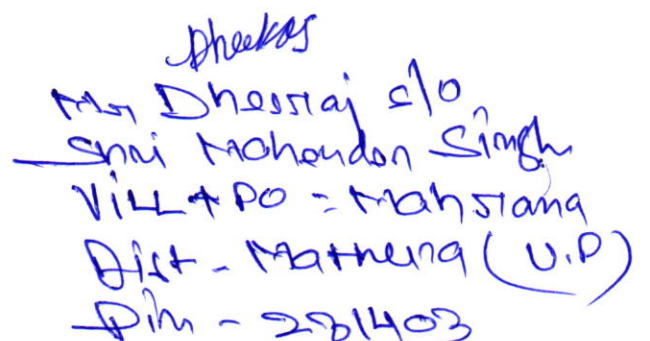 Mr Dheeraj c/o
Shri Mohender Singh
Vill + PO = Mahrana
Dist - Mathura (U.P)
Pin - 281403